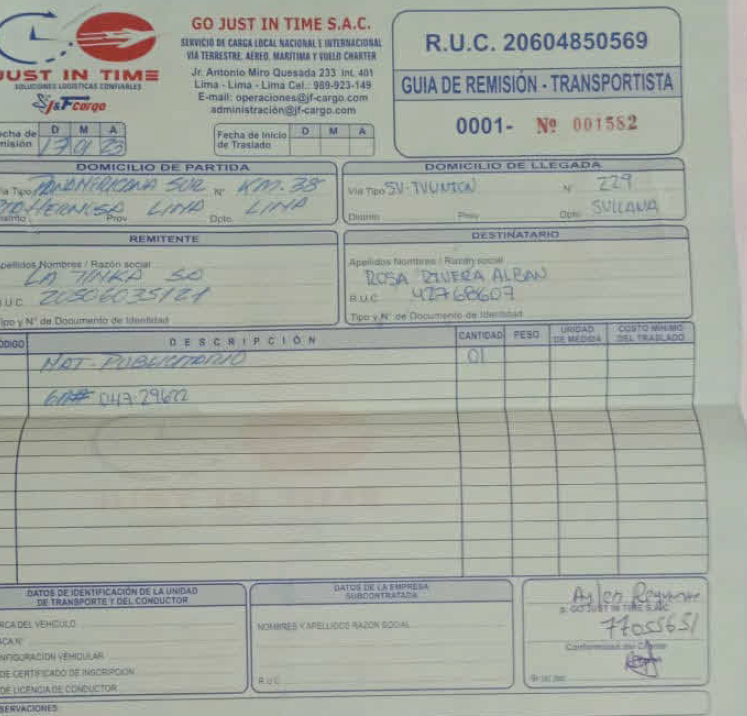 GO JUST IN TIME S.A.C.
SERVICIO DE CARGA LOCAL NACIONAL E INTERNACIONAL
VÍA TERRESTRE, AÉREO, MARÍTIMA Y VUELO CHARTER
Jr. Antonio Miro Quesada 233 Int. 401
Lima - Lima - Lima Cel.: 989-923-149
E-mail: operaciones@jf-cargo.com
administración@jf-cargo.com
JUST IN TIME
SOLUCIONES LOGISTICAS CONFIABLES
J&F cargo
R.U.C. 20604850569
GUIA DE REMISIÓN - TRANSPORTISTA
0001- Nº 001582
Fecha de Emisión D M A
17 01 23
Fecha de Inicio de Traslado D M A
DOMICILIO DE PARTIDA
Vía Tipo PANAMERICANA SUR Nº KM. 38
Distrito PTO HERMOSA Prov. LIMA Dpto. LIMA
DOMICILIO DE LLEGADA
Vía Tipo Nº 229
Distrito Prov. Dpto. SULLANA
REMITENTE
Apellidos Nombres / Razón social
LA TINKA SA
R.U.C. 20506035121
Tipo y Nº de Documento de Identidad
DESTINATARIO
Apellidos Nombres / Razón social
ROSA RIVERA ALBAN
R.U.C. 42768607
Tipo y Nº de Documento de Identidad
CÓDIGO DESCRIPCIÓN CANTIDAD PESO UNIDAD DE MEDIDA COSTO MÍNIMO DEL TRASLADO
MAT. PUBLICITARIO 01
DATOS DE IDENTIFICACIÓN DE LA UNIDAD
DE TRANSPORTE Y DEL CONDUCTOR
MARCA DEL VEHÍCULO
PLACA Nº
CONFIGURACIÓN VEHICULAR
DE CERTIFICADO DE INSCRIPCIÓN
DE LICENCIA DE CONDUCTOR
DATOS DE LA EMPRESA
SUBCONTRATADA
NOMBRES Y APELLIDOS RAZON SOCIAL
R.U.C.
p. GO JUST IN TIME S.A.C.
77055651
Conformidad del Cliente
OBSERVACIONES